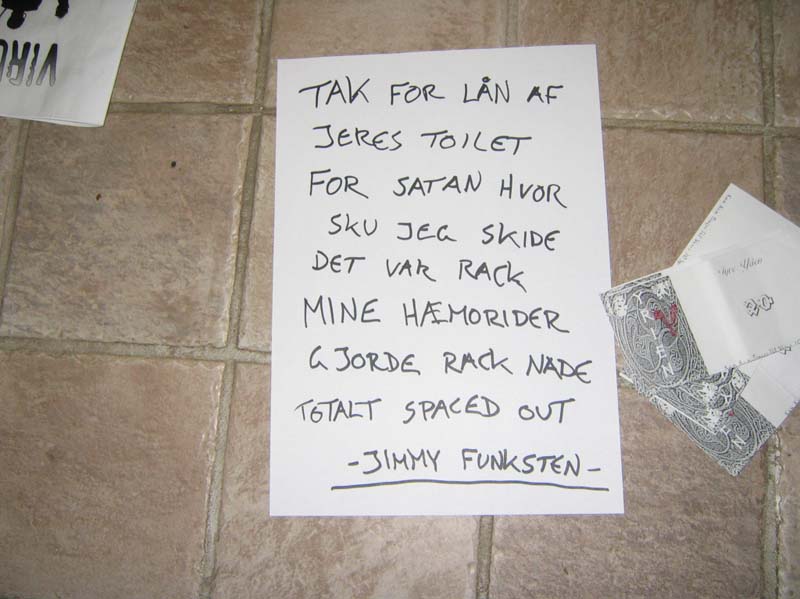 TAK FOR LÅN AF
JERES TOILET
FOR SATAN HVOR
SKU JEG SKIDE
DET VAR RACK
MINE HÆMORIDER
GJORDE RACK NÄDE
TOTALT SPACED OUT
-JIMMY FUNKSTEN-